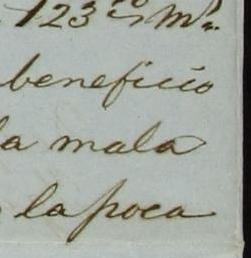 123 ms.
beneficio
la mala
la poca